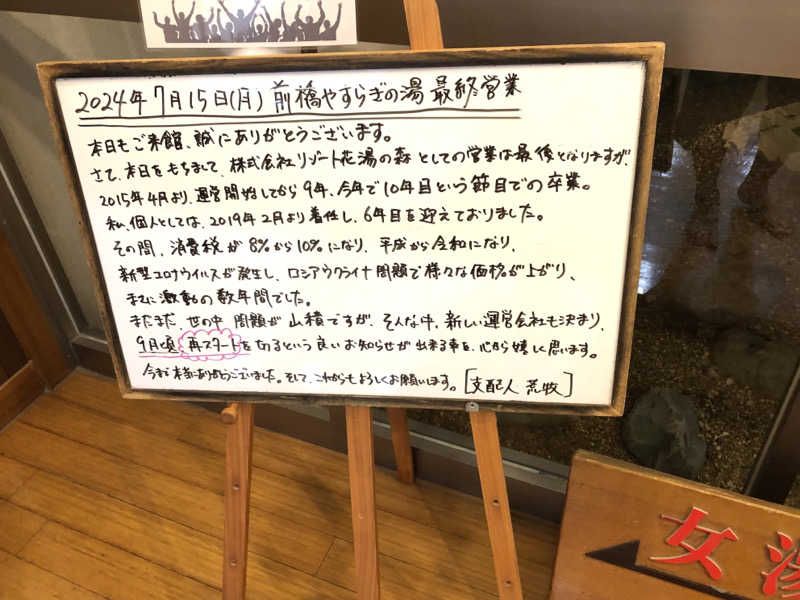 2024年7月15日(月) 前橋やすらぎの湯 最終営業
本日もご来館、誠にありがとうございます。
さて、本日をもちまして、株式会社リゾート花湯の森としての営業は最後となりますが、
2015年4月より、運営開始してから9年、今年で10年目という節目での卒業。
私、個人としては、2019年2月より着任し、6年目を迎えておりました。
その間、消費税が8%から10%になり、平成から令和になり、
新型コロナウイルスが発生し、ロシアウクライナ問題で様々な価格が上がり、
まさに激動の数年間でした。
まだまだ、世の中、問題が山積ですが、そんな中、新しい運営会社も決まり、
9月頃、再スタートを切るという良いお知らせが出来る事を、心から嬉しく思います。
今まで本当にありがとうございました。そして、これからもよろしくお願いします。[支配人 荒牧]
女湯